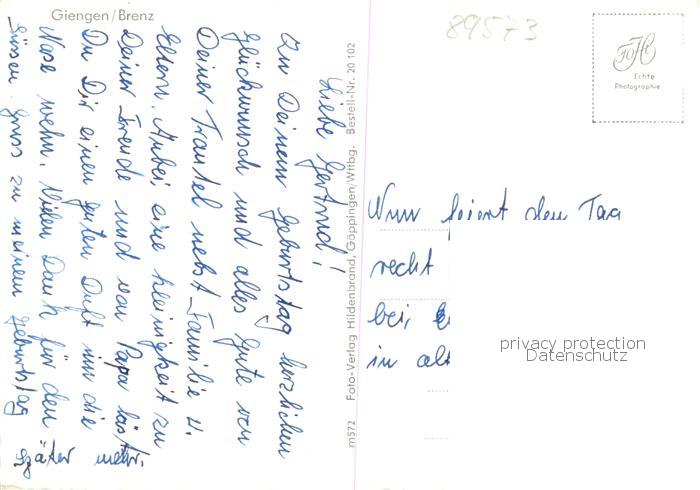 Giengen/Brenz
89573
FOHi
Echte
Photographie
Liebe Gertrud!
Zu Deinem Geburtstag herzlichen
Glückwunsch und alles Gute von
Deiner Trautel nebst Familie u.
Eltern. Anbei eine Kleinigkeit zu
Deiner Freude und von Papa läst
Du Dir einen guten Duft um die
Nase wehn. Vielen Dank für den
süssen Gruss zu meinem Geburtstag
später mehr.
m572 Foto-Verlag Hildenbrand, Göppingen/Wttbg. Bestell-Nr. 20 102
Nun feiert den Tag
recht
bei,
in alt
privacy protection
Datenschutz